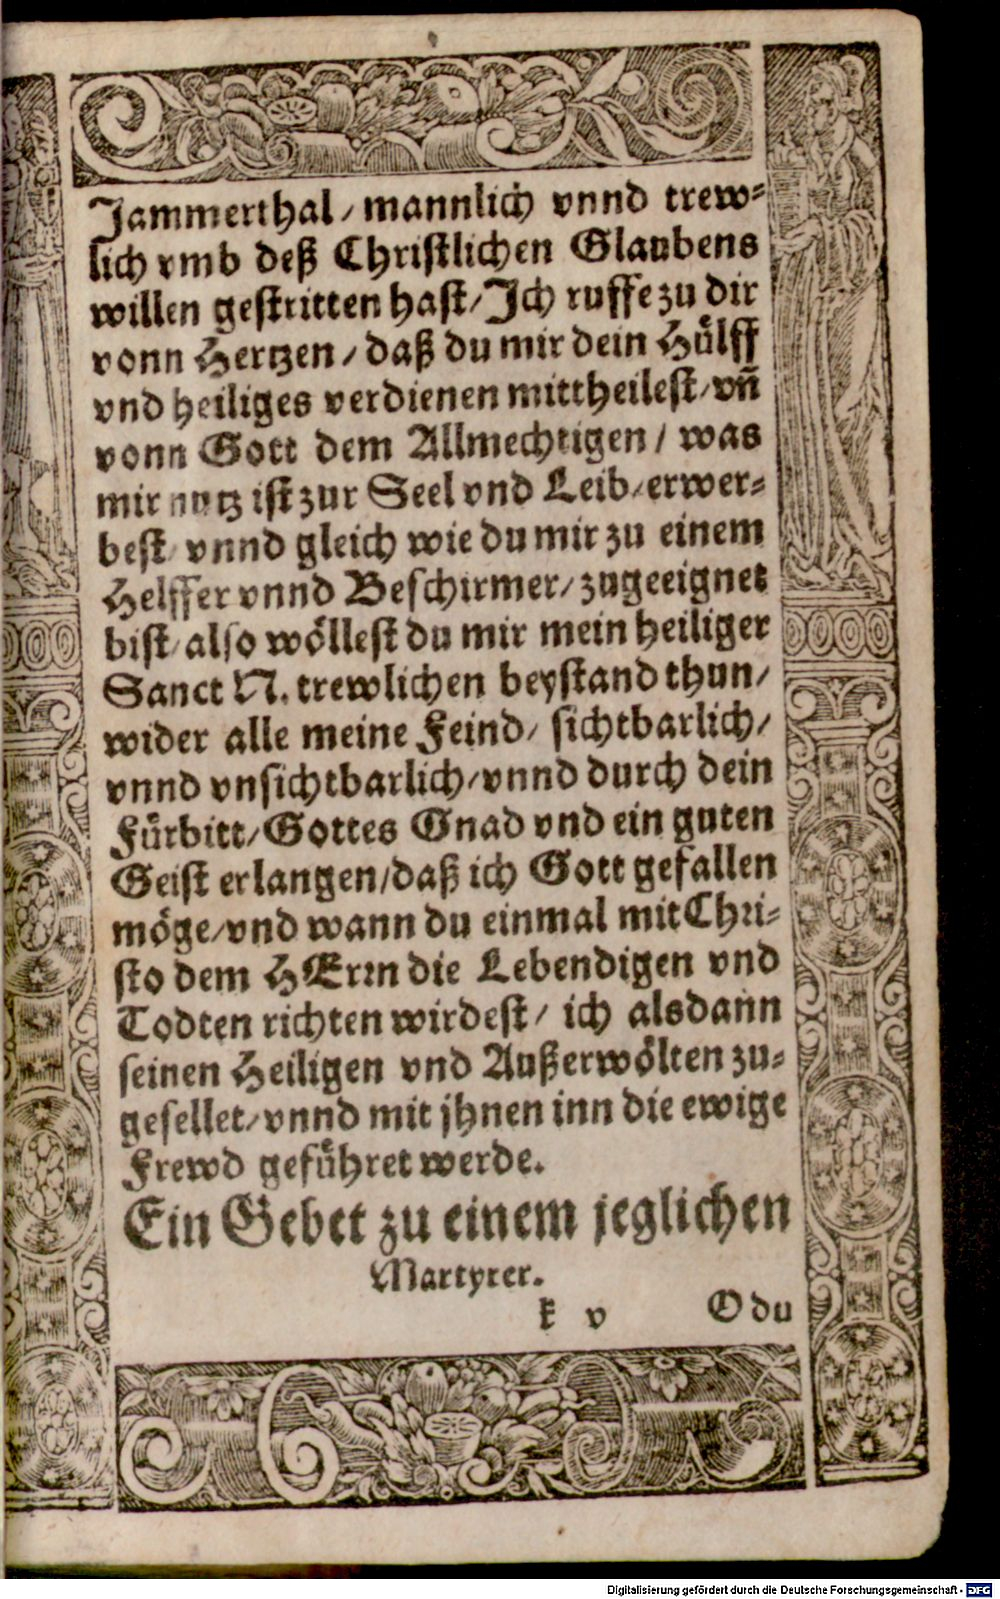 Jammerthal / mannlich vnnd trew-
lich vmb deß Christlichen Glaubens
willen gestritten hast / Jch ruffe zu dir
vonn Hertzen / daß du mir dein Hülff
vnd heiliges verdienen mittheilest / vñ
vonn Gott dem Allmechtigen / was
mir nutz ist zur Seel vnd Leib / erwer-
best / vnnd gleich wie du mir zu einem
Helffer vnnd Beschirmer / zugeeignet
bist / also wöllest du mir mein heiliger
Sanct N. trewlichen beystand thun /
wider alle meine Feind / sichtbarlich /
vnnd vnsichtbarlich / vnnd durch dein
Fürbitt / Gottes Gnad vnd ein guten
Geist erlangen / daß ich Gott gefallen
möge / vnd wann du einmal mit Chri-
sto dem HErrn die Lebendigen vnd
Todten richten wirdest / ich alsdann
seinen Heiligen vnd Außerwölten zu-
gesellet / vnnd mit jhnen inn die ewige
Frewd geführet werde.
Ein Gebet zu einem jeglichen
Martyrer.
k v O du
Digitalisierung gefördert durch die Deutsche Forschungsgemeinschaft - DFG